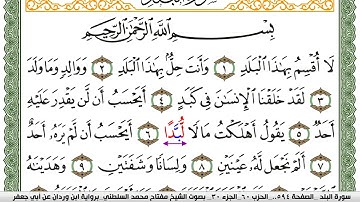 سورة البلد
بِسْمِ اللَّهِ الرَّحْمَٰنِ الرَّحِيمِ
لَا أُقْسِمُ بِهَٰذَا الْبَلَدِ ١ وَأَنتَ حِلٌّ بِهَٰذَا الْبَلَدِ ٢ وَوَالِدٍ وَمَا وَلَدَ
٣ لَقَدْ خَلَقْنَا الْإِنسَٰنَ فِي كَبَدٍ ٤ أَيَحْسَبُ أَن لَّن يَقْدِرَ عَلَيْهِ
أَحَدٌ ٥ يَقُولُ أَهْلَكْتُ مَالًا لُّبَّدًا ٦ أَيَحْسَبُ أَن لَّمْ يَرَهُۥ أَحَدٌ
٧ أَلَمْ نَجْعَل لَّهُۥ عَيْنَيْنِ ٨ وَلِسَانًا وَشَفَتَيْنِ ٩ وَهَدَيْنَٰهُ
سورة البلد الصفحة ٥٩٤.. الحزب ٦٠ الجزء ٣٠.. بصوت الشيخ مفتاح محمد السلطني برواية ابن وردان عن أبي جعفر